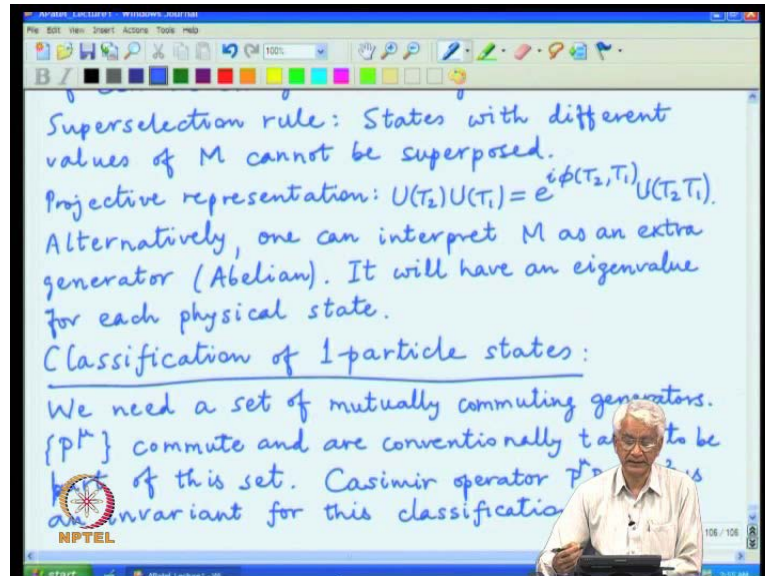 APatel_Lecture1 - Windows Journal
File Edit View Insert Actions Tools Help
100%
B I
Superselection rule: States with different
values of M cannot be superposed.
Projective representation: U(T₂)U(T₁) = e^{iϕ(T₂,T₁)} U(T₂T₁).
Alternatively, one can interpret M as an extra
generator (Abelian). It will have an eigenvalue
for each physical state.
Classification of 1-particle states:
We need a set of mutually commuting generators.
{P^μ} commute and are conventionally to be
part of this set. Casimir operator is
an invariant for this classification
NPTEL
106 / 106
start